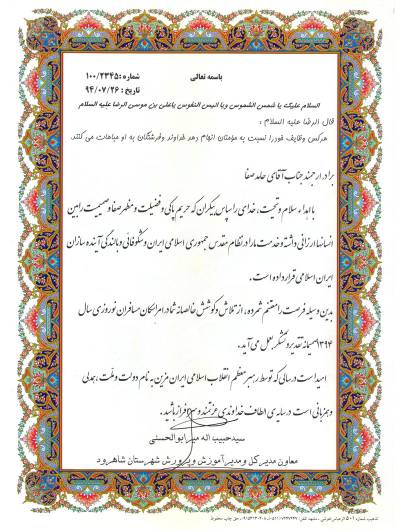 باسمه تعالی
شماره :۱۰۰/۲۳۴۵
تاریخ : ۹۴/۰۷/۲۶
السلام علیک یا شمس الشموس ویا انیس النفوس یاعلی بن موسی الرضا علیه السلام
قال الرضا علیه السلام :
هرکس وظایف خودرا نسبت به مؤمنان انجام دهد خداوند وفرشتگان به او مباهات می کنند.
برادر ارجمند جناب آقای حامد صفا
با اهداء سلام و تحیت، خدای را سپاس بیکران که حریم پاکی و فضیلت و مظهر صفا و صمیمیت را بین
انسانها ارزانی داشته و خدمت ما را در نظام مقدس جمهوری اسلامی ایران و شکوفائی و بالندگی آینده سازان
ایران اسلامی قرار داده است.
بدین وسیله فرصت را مغتنم شمرده، از تلاش و کوشش خالصانه شما در امر اسکان مسافران نوروزی سال
۱۳۹۴ صمیمانه تقدیر و تشکر بعمل می آید.
امید است در سالی که توسط رهبر معظم انقلاب اسلامی ایران مزین به نام دولت و ملت، همدلی
و همزبانی است در سایه ی الطاف خداوندی عزتمند و سرافراز باشید.
سیدحبیب اله میرابوالحسنی
معاون مدیر کل و مدیر آموزش و پرورش شهرستان شاهرود